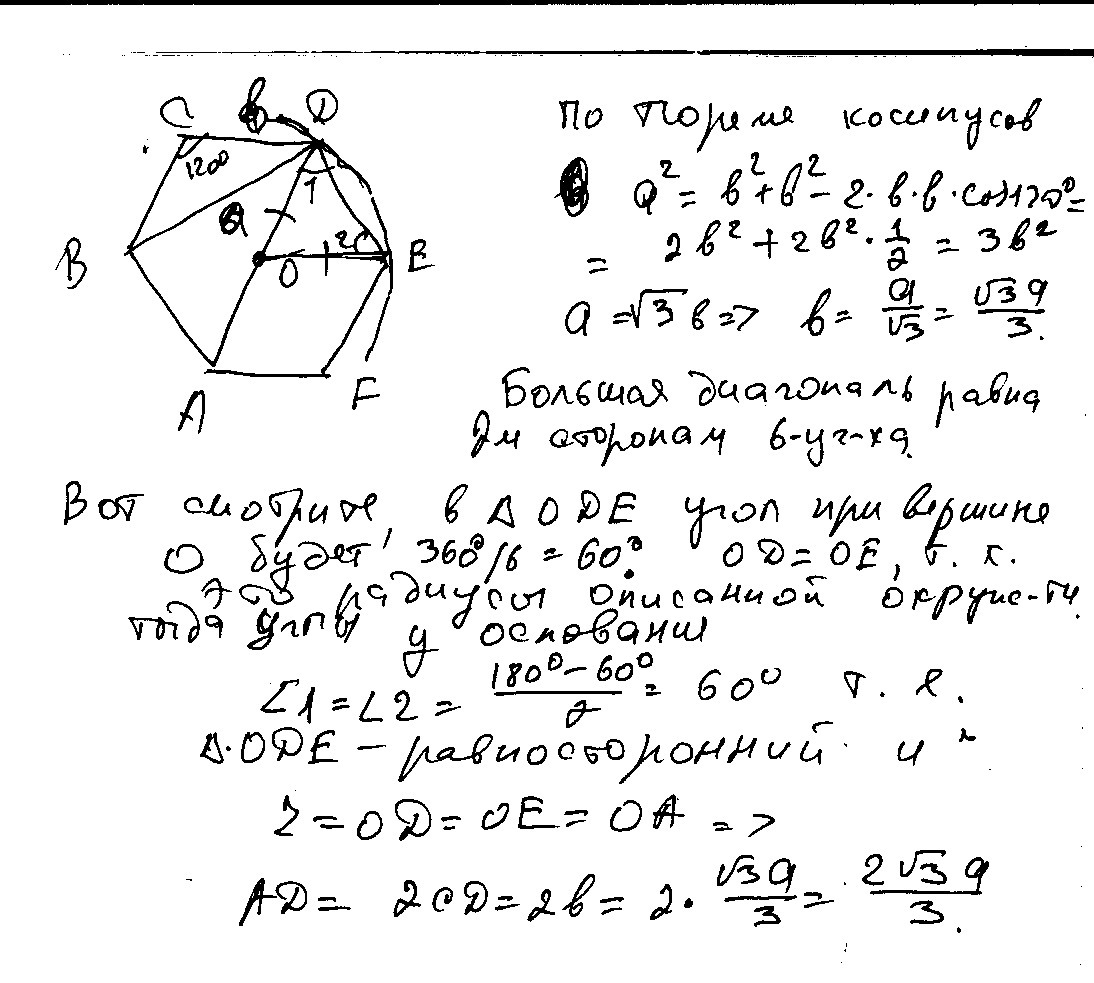 C в D
120°
1
a
B
O
2
E
A
F
По теореме косинусов
a² = в² + в² - 2·в·в·cos120° =
= 2в² + 2в²·1/2 = 3в²
a = √3 в => в = a/√3 = √3a/3.
Большая диагональ равна
2м сторонам 6-уг-ка.
Вот смотрите, в Δ ODE угол при вершине
O будет 360°/6 = 60°. OD = OE, т. к.
это радиусы описанной окруж-ти,
тогда углы у основания
∠1 = ∠2 = (180° - 60°)/2 = 60° т. е.
Δ ODE - равносторонний и
r = OD = OE = OA =>
AD = 2OD = 2в = 2·√3a/3 = 2√3a/3.